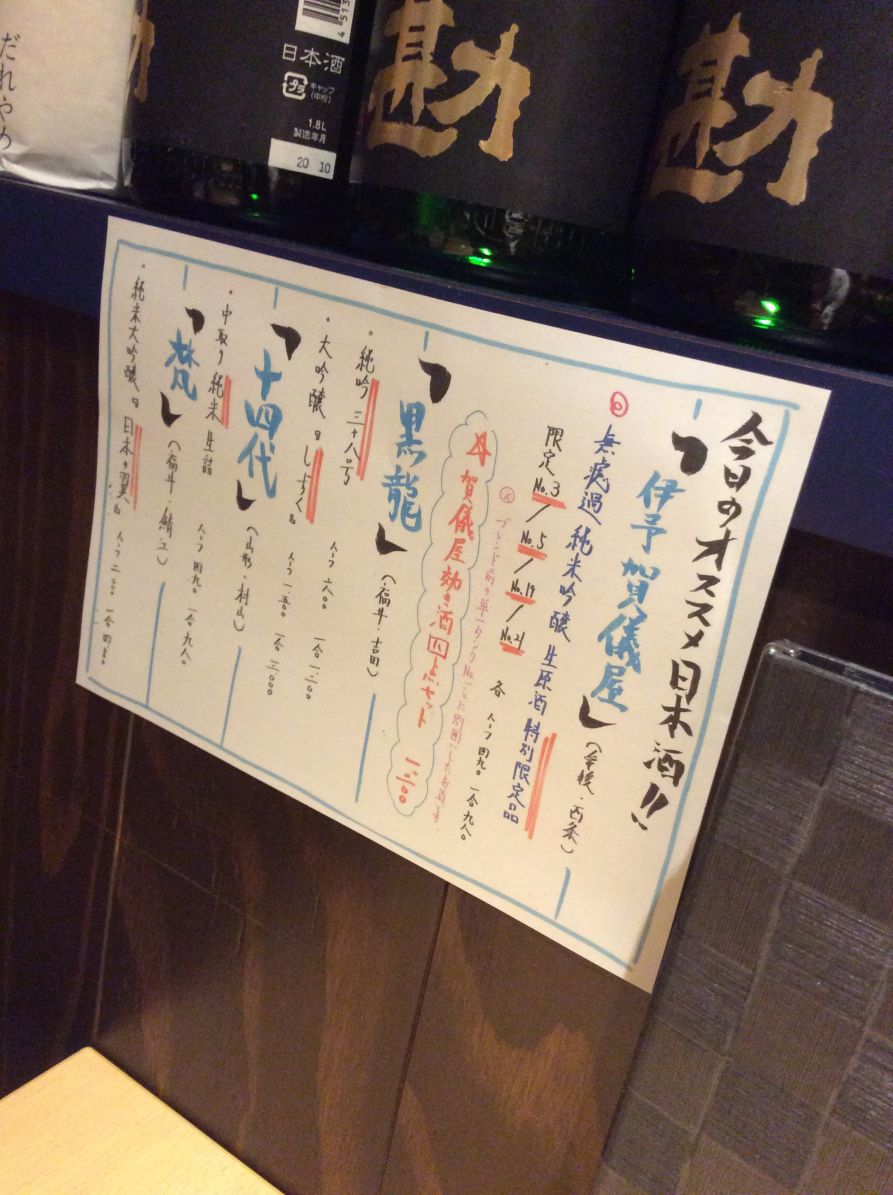 だれやめ
日本酒
プラ
キャップ
(中栓)
1.8L
製造年月
20 10
勘
勘
今日のオススメ日本酒!!
「伊予賀儀屋」
(愛媛・西条)
無濾過 純米吟醸 生原酒 特別限定品
限定 No.3 / No.5 / No.19 / No.21
各 ハーフ 四九〇 一合 九八〇
※ ブレンド前の単一タンクNo.ごとに別囲いしたお酒です。
賀儀屋効き酒 四点セット 一、三〇〇
「黒龍」
(福井・吉田)
・純吟 三十八号
ハーフ 六〇〇 一合 一、二〇〇
・大吟醸『しずく』
ハーフ 一、五〇〇 一合 三、〇〇〇
「十四代」
(山形・村山)
・中取り純米 生詰
ハーフ 四九〇 一合 九八〇
「梵」
(福井・鯖江)
・純米大吟醸『日本の翼』
ハーフ 二、〇〇〇 一合